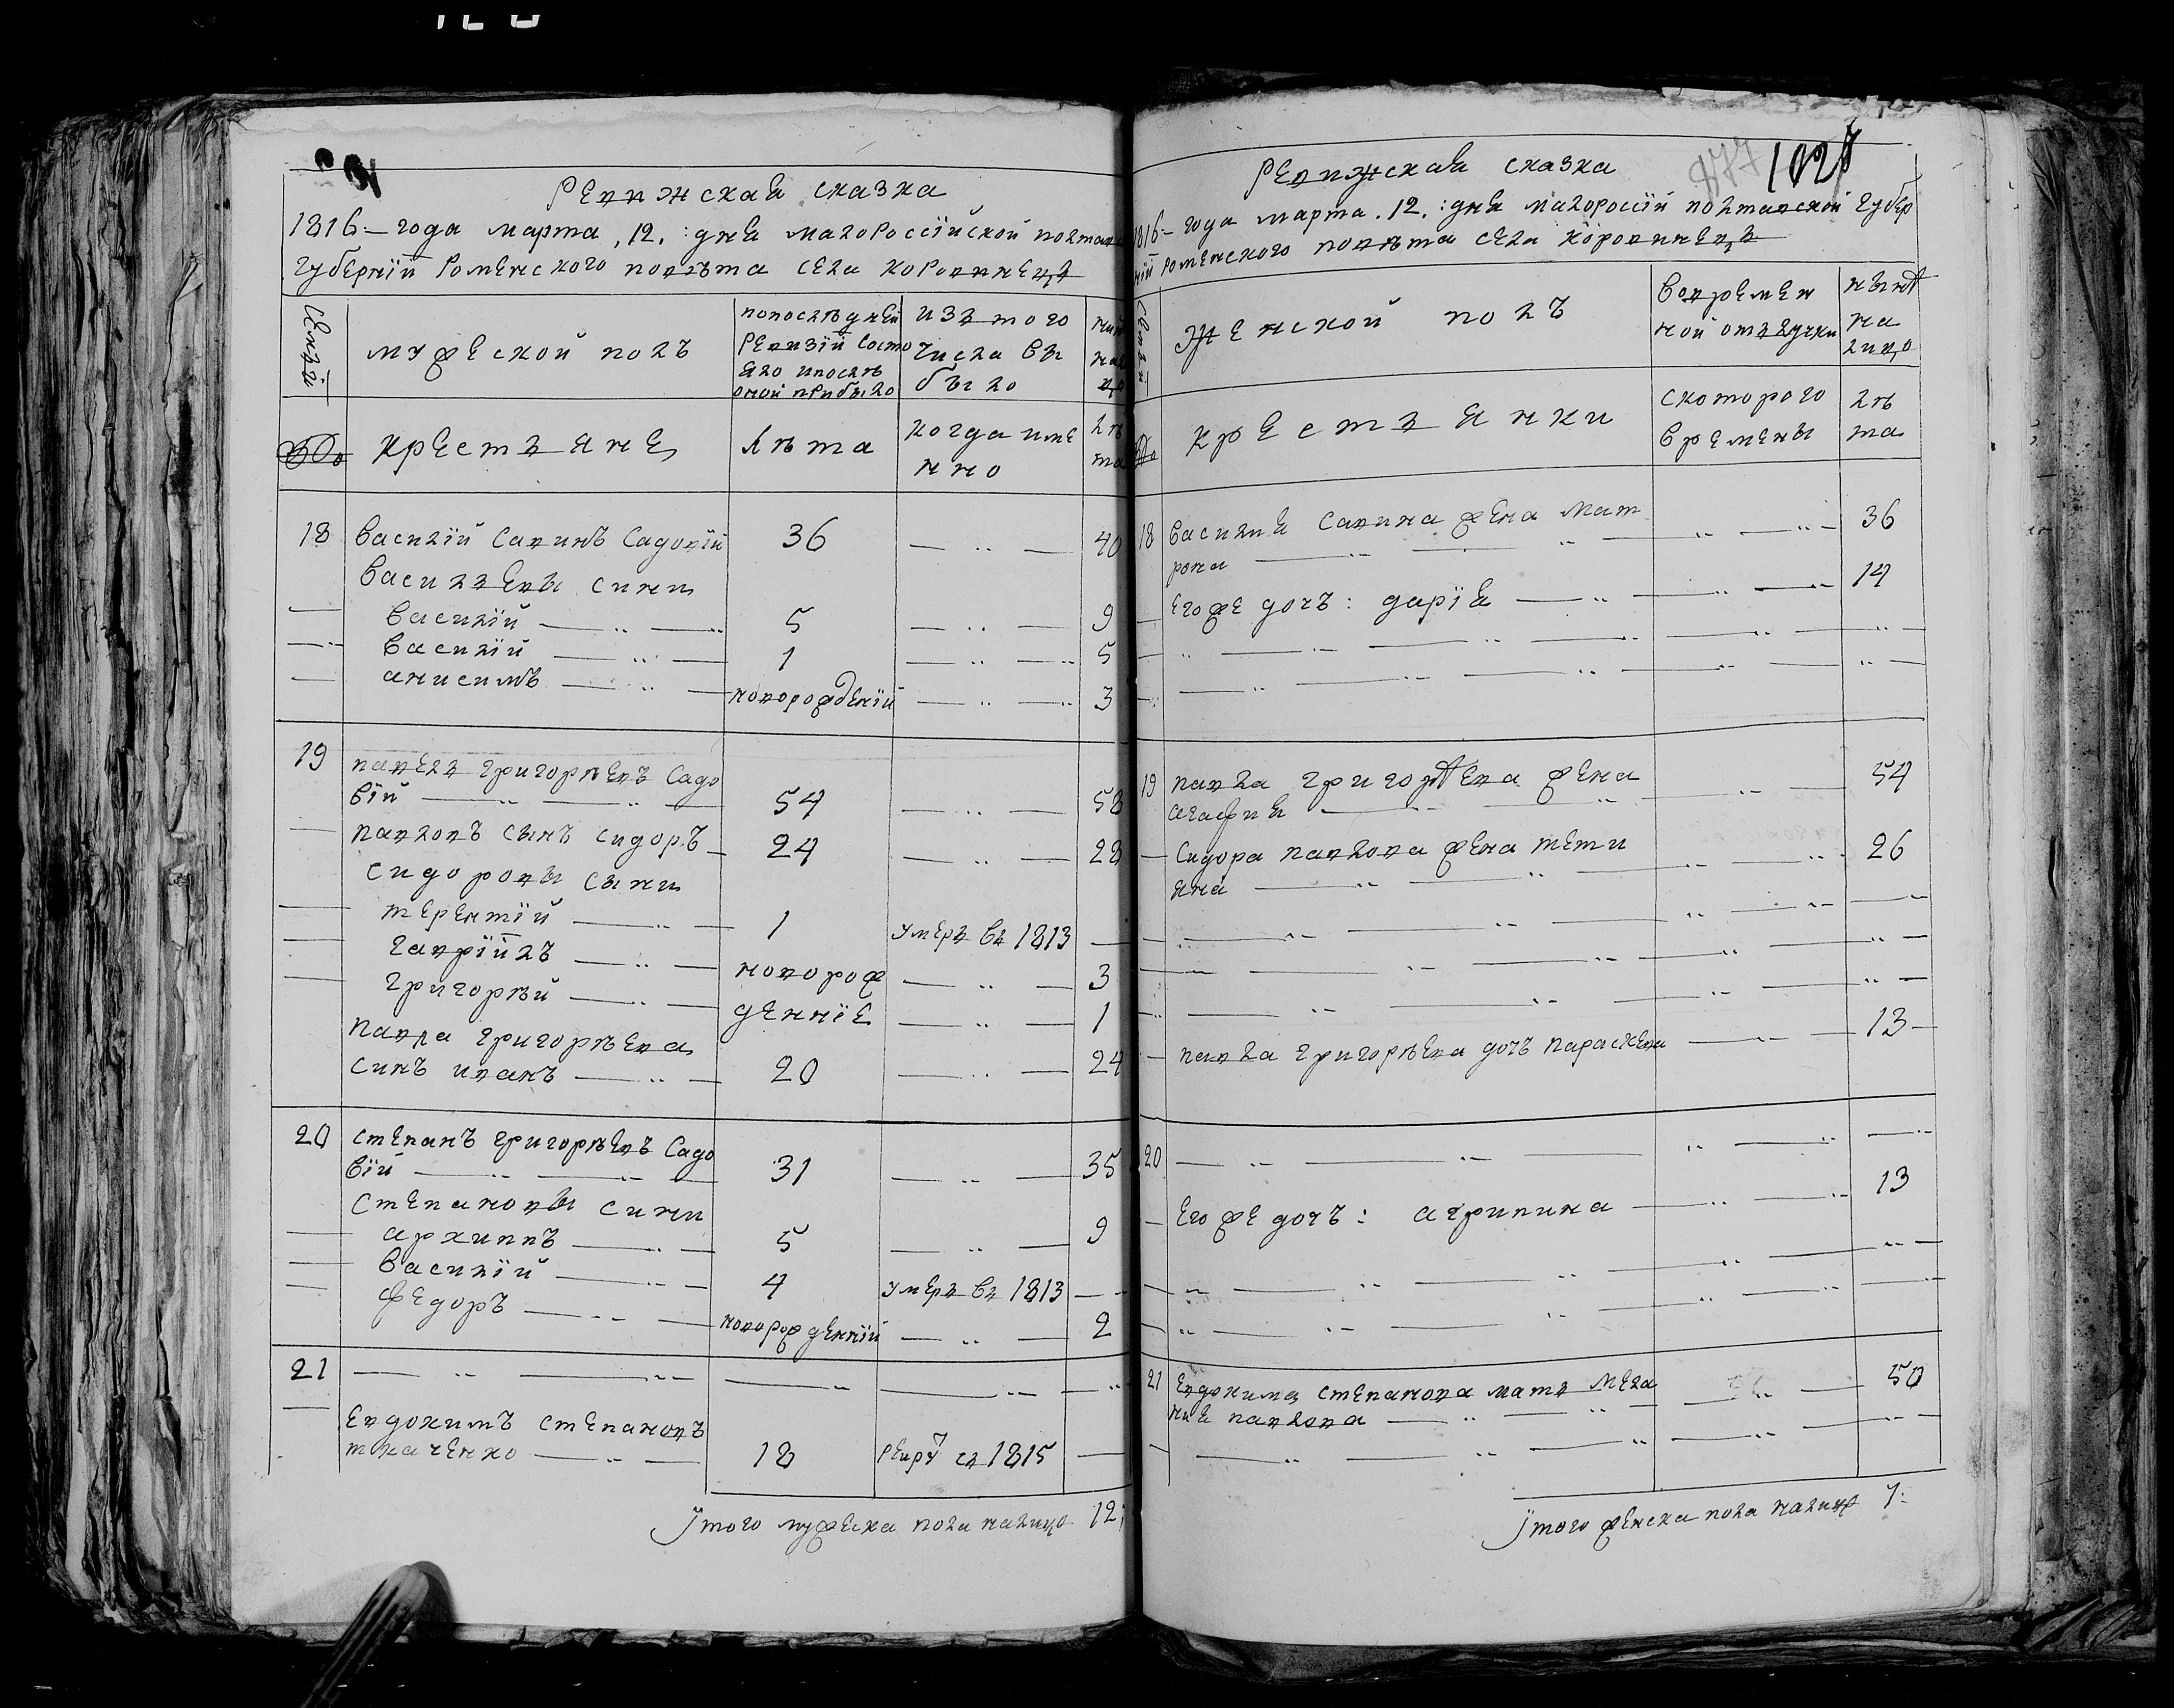 Ревижская сказка
1816 – года марта, 12. : дня малороссїйской полтав
губернїй роменского повѣта села коровинець
Семьй
мужеской полъ
попослѣдней
ревизїй состо
яло ипослѣ
оной прибыло
изь того
числа вы
было
крестьяне
лѣта
когда име
нно
лѣ
та
18 василїй савинъ садовїй 36 40
васильевы сини
василїй 5 9
василїй 1 5
анисимъ новорожденїй 3
19 павель григорѣевъ садо
вїй 54 58
павловъ сынъ сидоръ 24 28
сидоровы сыни
терентїй 1 умерь вь 1813
гаврїйлъ новорож 3
григорѣй деннїе 1
павла григорѣева
синъ иванъ 20 24
20 степанъ григорѣевъ садо
вїй 31 35
степановы сини
архиппъ 5 9
василїй 4 умерь вь 1813
федоръ новорожденнїй 2
21
евдокимъ степановъ
ткаченко 18 рекру сь 1815
Їтого мужеска пола налицо 12:
Ревижская сказка
1028
1816 – года марта. 12. : дня малоросїй полтавской губер
нїй роменского повѣта села коровинець
женской полъ
вовремен
ной отьлучки
нынѣ
на
лицо
крестьянки
скоторого
времены
лѣ
та
18 василия савина жена мат 36
рона
егоже дочъ: дарїя 14
19 павла григорѣева жена 54
агафия
сидора павлова жена тети 26
яна
павла григорѣева дочъ параскева 13
20
егоже дочъ: агрипина 13
21 евдокима степанова мать мела 50
ния павлова
Їтого женска пола налицѣ 7: